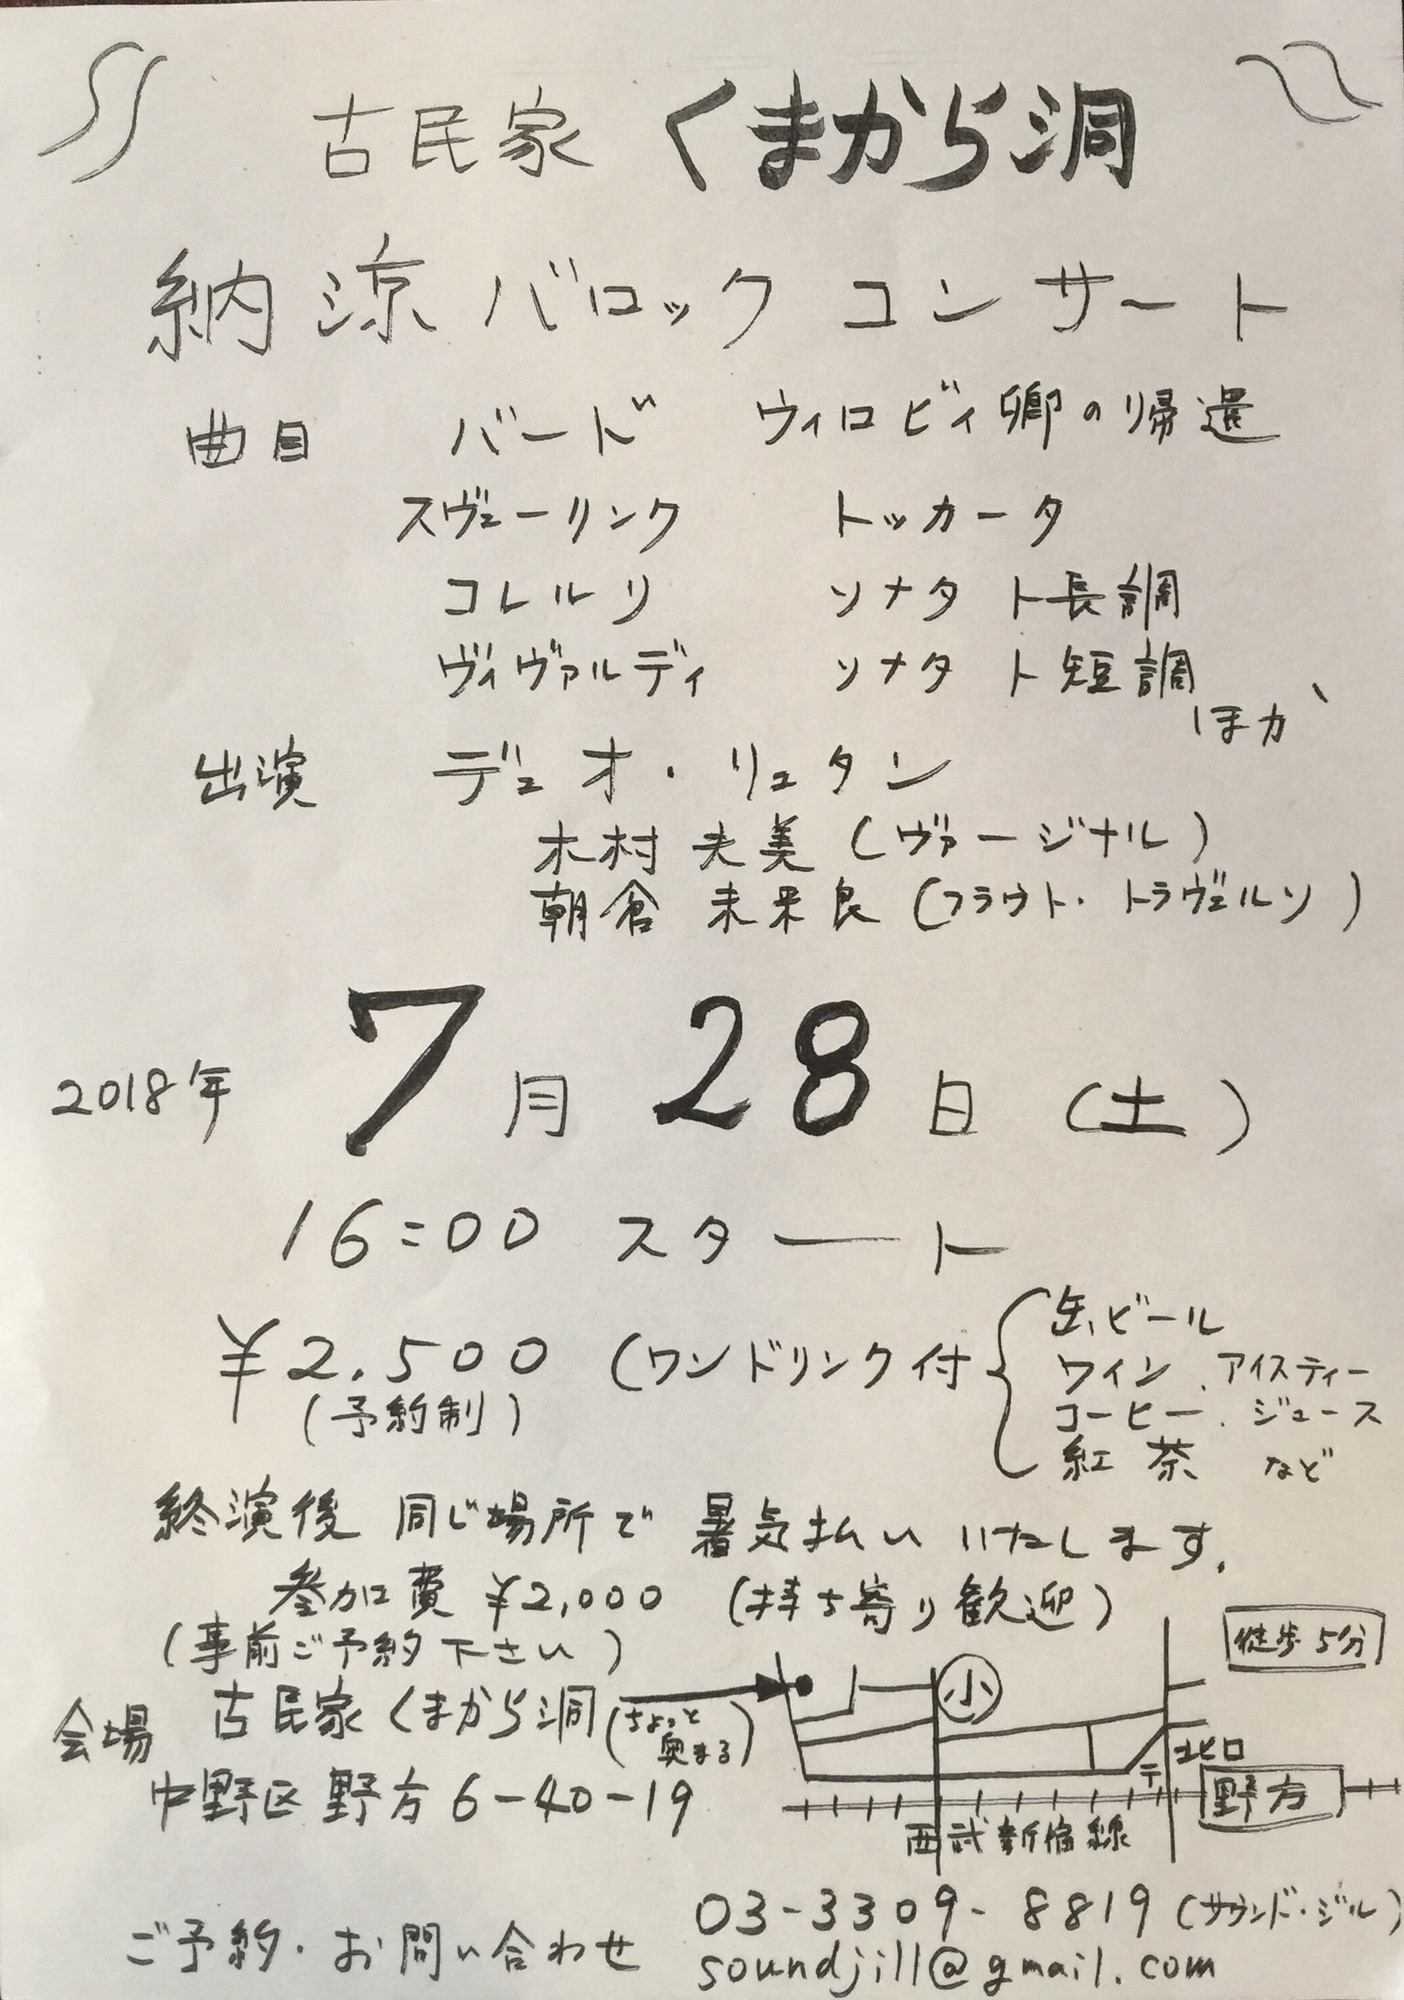 古民家 くまから洞
納涼 バロック コンサート
曲目 バード ウィロビィ卿の帰還
スヴェーリンク トッカータ
コレルリ ソナタ ト長調
ヴィヴァルディ ソナタ ト短調
ほか
出演 デュオ・リュタン
木村 夫美 (ヴァージナル)
朝倉 未来良 (フラウト・トラヴェルソ)
2018年 7月 28日 (土)
16:00 スタート
¥2.500 (ワンドリンク付
(予約制)
缶ビール
ワイン、アイスティー
コーヒー、ジュース
紅茶 など
終演後 同じ場所で 暑気払い いたします.
参加費 ¥2,000 (持ち寄り歓迎)
(事前ご予約下さい)
会場 古民家くまから洞
(ちょっと
奥まる)
中野区 野方 6-40-19
徒歩5分
小
北口
〒
野方
西武新宿線
ご予約・お問い合わせ 03-3309-8819 (サウンド・ジル)
soundjill@gmail.com